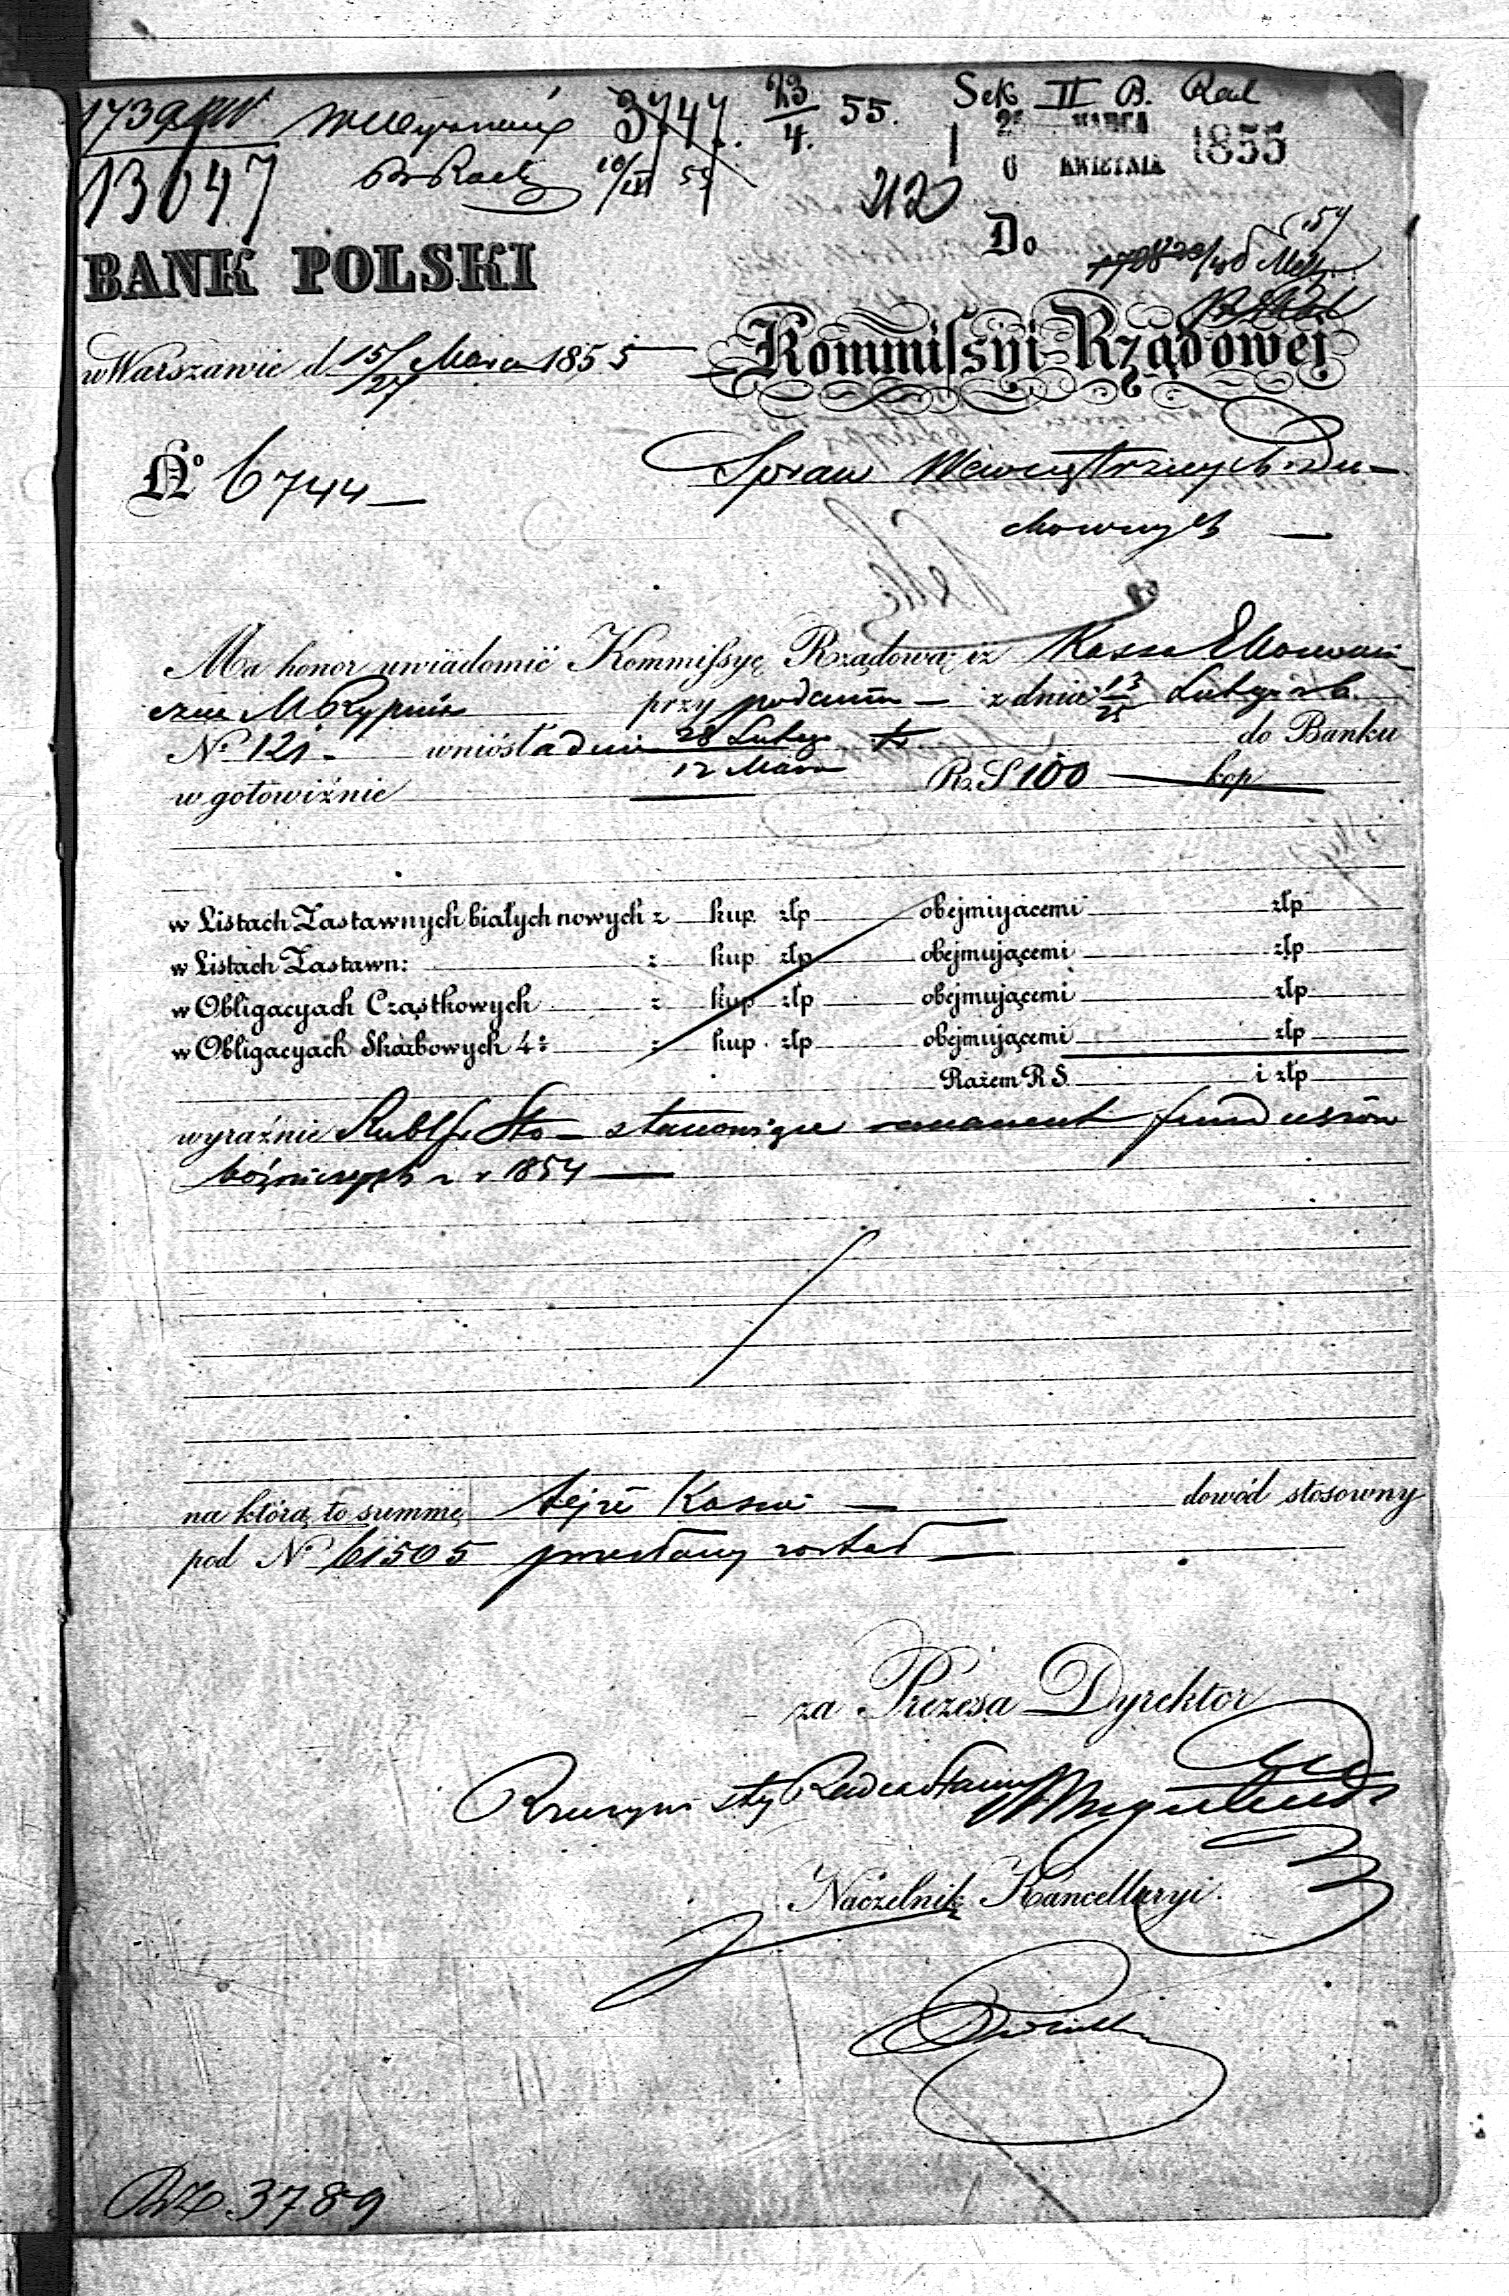 13047
3747.
23/4. 55.
Sek II B. Rad
25 MARCA
6 KWIETNIA 1855
212
BANK POLSKI
Do
w Warszawie d. 15/27 Marca 1855
Kommissyi Rządowej
No 6744
Spraw Wewnętrznych i Du-
chownych
Ma honor uwiadomić Kommissyę Rządową iż Kassa Ekonomi-
czna M. Rypin przy podaniu z dnia 13/25 Lutego r. b.
No 121 wniósła dnia 28 Lutego do Banku
12 Marca
w gotowiźnie R. S. 100 kop
w Listach Zastawnych białych nowych z kup. złp obejmującemi złp
w Listach Zastawn: z kup. złp obejmującemi złp
w Obligacyach Cząstkowych z kup złp obejmującemi złp
w Obligacyach Skarbowych 4% z kup. złp obejmującemi złp
Razem R. S. i złp
wyraźnie Rubli Sr. Sto stanowiące remanent funduszów
bóżniczych z r 1854
na którą to summę tejże Kassie dowód stosowny
pod No 61505 przesłany został
za Prezesa Dyrektor
Rzeczywisty Radca Stanu
Naczelnik Kancellaryi
3789